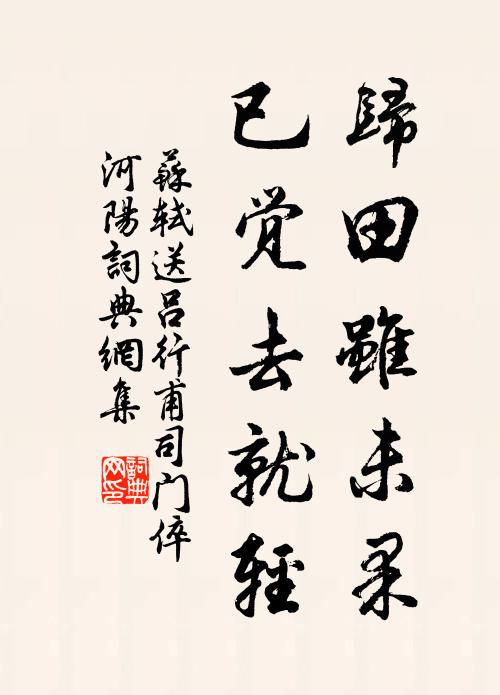 歸田雖未果
已觉去就輕
蘇軾送吕行甫司门倅
河陽詞典網集
詞典
网印